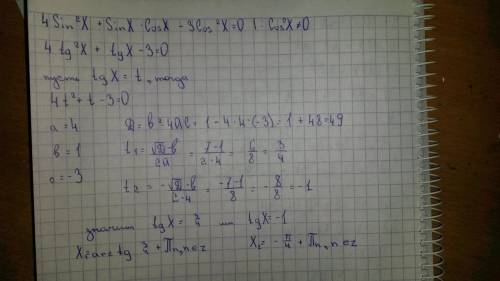 4 Sin²X + SinX · CosX - 3Cos²X=0 | : Cos²X≠0
4 tg²X + tgX - 3=0
пусть tgX = t, тогда
4t² + t - 3=0
a=4 D = b²-4ac = 1 - 4·4·(-3) = 1 + 48=49
b=1 t₁ = (√D-b)/2a = (7-1)/(2·4) = 6/8 = 3/4
c=-3
t₂ = (-√D-b)/(2·4) = (-7-1)/8 = -8/8 = -1
значит tgX = 3/4 или tgX=-1
X₁=arctg 3/4 + Πn, n∈z X₂= -π/4 + Πn, n∈z